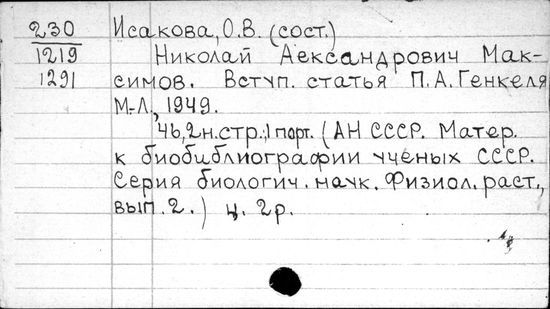 230 Исакова, О.В. (сост.)
1219 Николай Аександрович Мак-
1291 симов. Вступ. статья П.А. Генкеля
М-Л., 1949.
46,2н.стр.;1порт. (АН СССР. Матер.
к биобиблиографии учёных СССР.
Серия биологич. наук. Физиол. раст.,
вып. 2.) ц. 2р.